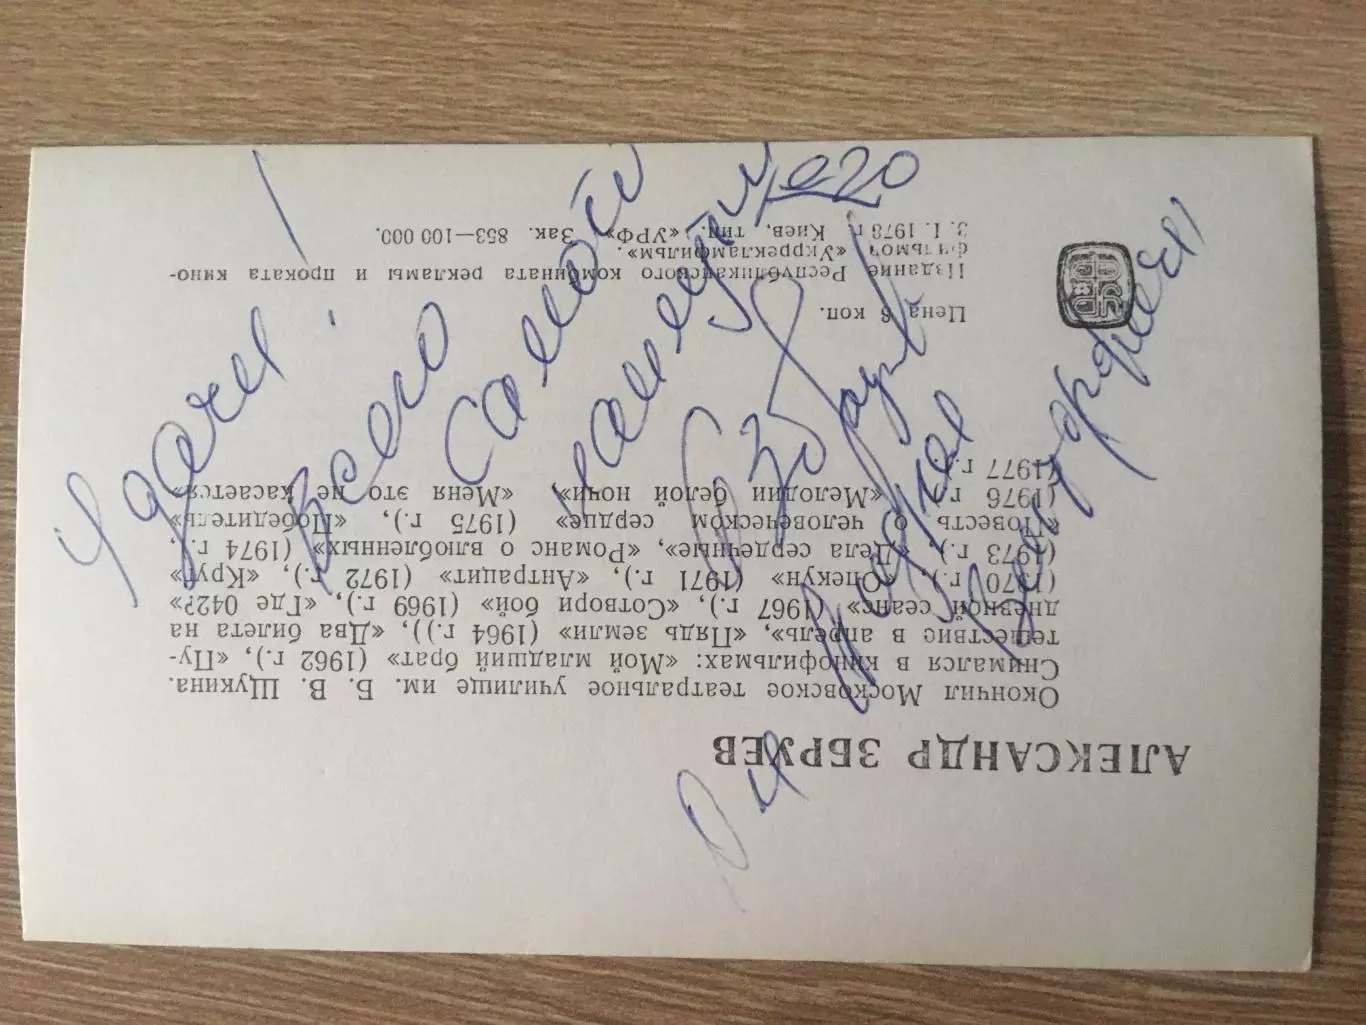 АЛЕКСАНДР ЗБРУЕВ
Окончил Московское театральное училище им. Б. В. Щукина.
Снимался в кинофильмах: «Мой младший брат» (1962 г.), «Пу-
тешествие в апрель», «Пядь земли» (1964 г.), «Два билета на
дневной сеанс» (1967 г.), «Сотвори бой» (1969 г.), «Где 042?»
(1970 г.), «Опекун» (1971 г.), «Антрацит» (1972 г.), «Круг»
(1973 г.), «Дела сердечные», «Романс о влюбленных» (1974 г.),
«Повесть о человеческом сердце» (1975 г.), «Победитель»
(1976 г.), «Мелодии белой ночи» «Меня это не касается»
(1977 г.)
Цена 8 коп.
Издание Республиканского комбината рекламы и проката кино-
фильмов «Укррекламфильм».
3. I. 1978 г. Киев, тип. «УРФ». Зак. 853—100 000.
Удачи!
Всего
Самого